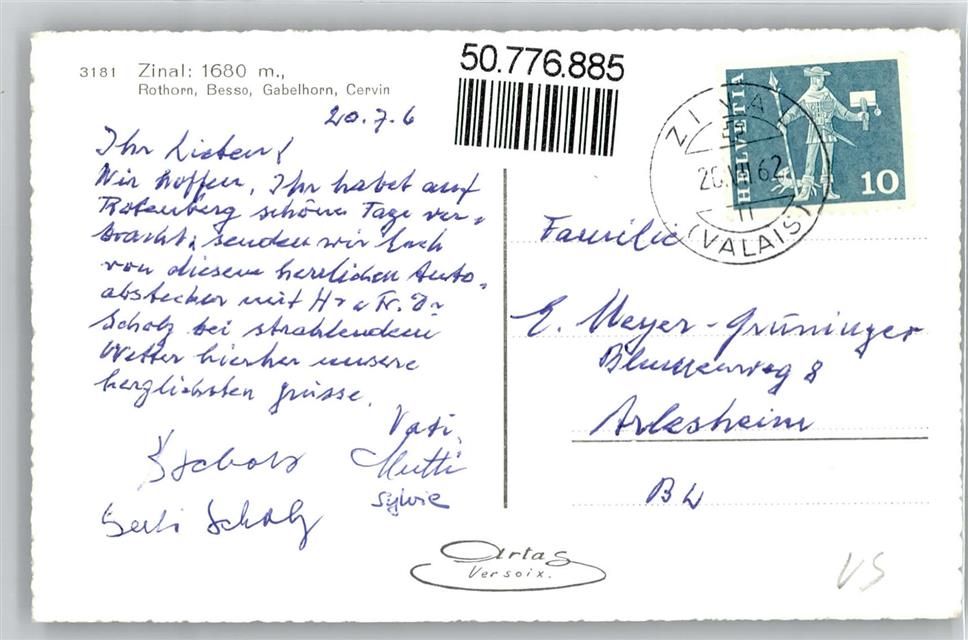 3181 Zinal: 1680 m.,
Rothorn, Besso, Gabelhorn, Cervin
50.776.885
HELVETIA
10
ZINAL
20.VII 62
(VALAIS)
20.7.6
Ihr Lieben!
Wir hoffen, Ihr habet auf
Rotenberg schöne Tage ver-
bracht & senden wir Euch
von diesem herrlichen Auto-
abstecher mit Hr & Fr. Dr
Scholz bei strahlendem
Wetter hierher unsere
herzlichsten Grüsse.
Vati,
Mutti
Sylvie
Scholz
Gerti Scholz
Familie
E. Meyer-Grüninger
Blumenweg 8
Arlesheim
BL
Artas
Versoix.
VS